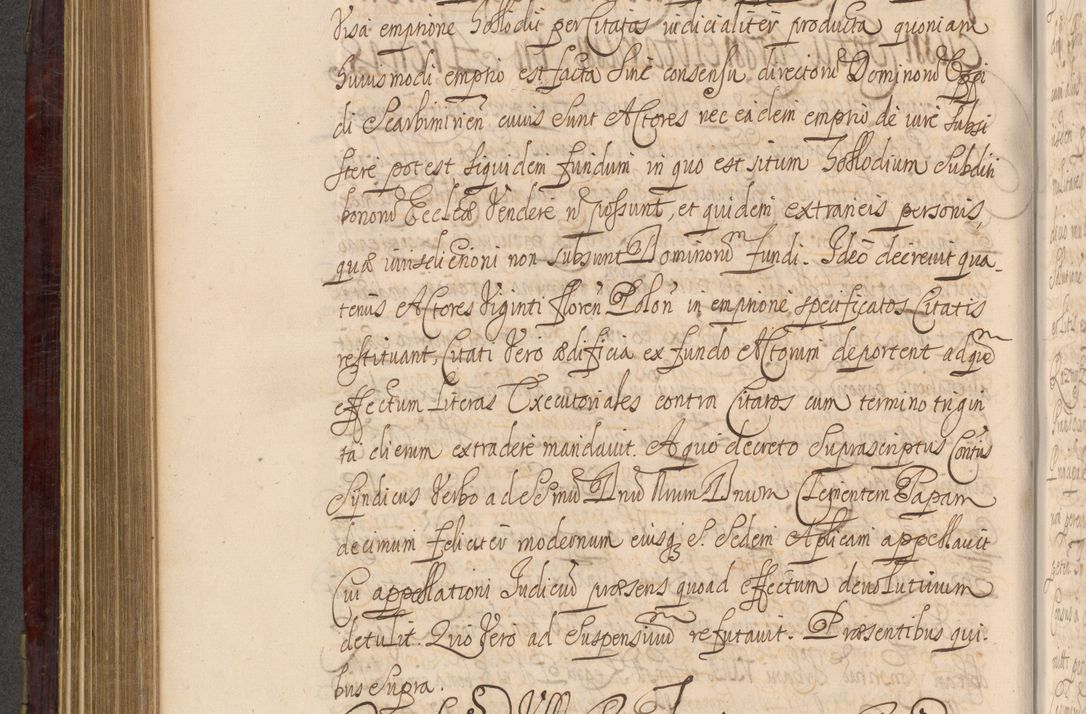 Visa emptione Hollodii per Citatos iudicialiter producta quoniam
huiusmodi emptio est facta Sine consensu directorū Dominorū Eppi
di Scarbimirień cuius Sunt Actores nec eadem emptio de iure Subsi
stere potest siquidem fundum in quo est situm Hollodium Subditi
bonorū Ecclæ Vendere ń possunt, et quidem extraneis personis
quæ iurisdictioni non subsunt Dominorū fundi. Ideo decrevit qua
tenus Actores Viginti floreń Poloń in emptione specificatos Citatis
restituant, Citati Vero ædificia ex fundo Actorum deportent ad quē
effectum Literas Executoriales contra Citatos cum termino trigin
ta dierum extradere mandavit. A quo decreto Suprascriptus
Syndicus Verbo ad SSmū Dnū Nrum Dnum Clementem Papam
decimum feliciter modernum eiusq S. Sedem Aplicam appellavit
Cui appellationi Iudiciū præsens quoad effectum devolutivum
detulit. Quo Vero ad Suspensivū refutavit. Præsentibus qui
bus Supra.